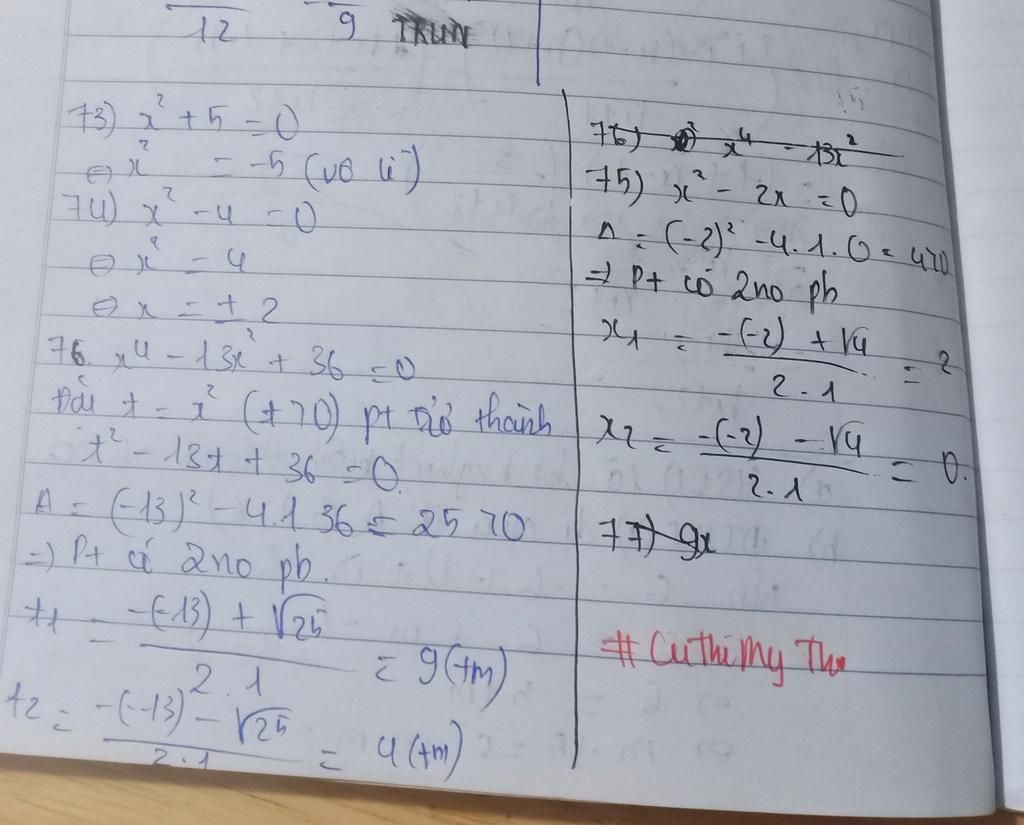 12 9
73) x² + 5 = 0
⇔ x² = -5 (vô lí)
74) x² - 4 = 0
⇔ x² = 4
⇔ x = ± 2
76. x⁴ - 13x² + 36 = 0
Đặt t = x² (t > 0) pt trở thành
t² - 13t + 36 = 0.
Δ = (-13)² - 4.1 36 = 25 > 0
=> Pt có 2 no pb.
t₁ = -(-13) + √25 / 2.1 = 9 (tm)
t₂ = -(-13) - √25 / 2.1 = 4 (tm)
76) x⁴ - 13x²
75) x² - 2x = 0
Δ = (-2)² - 4.1.0 = 4 > 0
=> Pt có 2no pb
x₁ = -(-2) + √4 / 2.1 = 2
x₂ = -(-2) - √4 / 2.1 = 0.
77) 9x
# CuThiMy